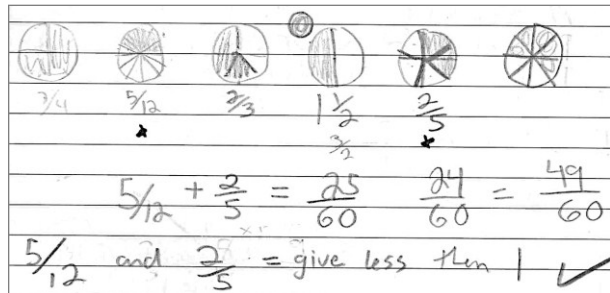 3/4 5/12 2/3 1 1/2 2/5
3/2
5/12 + 2/5 = 25/60 24/60 = 49/60
5/12 and 2/5 = give less then 1 ✓